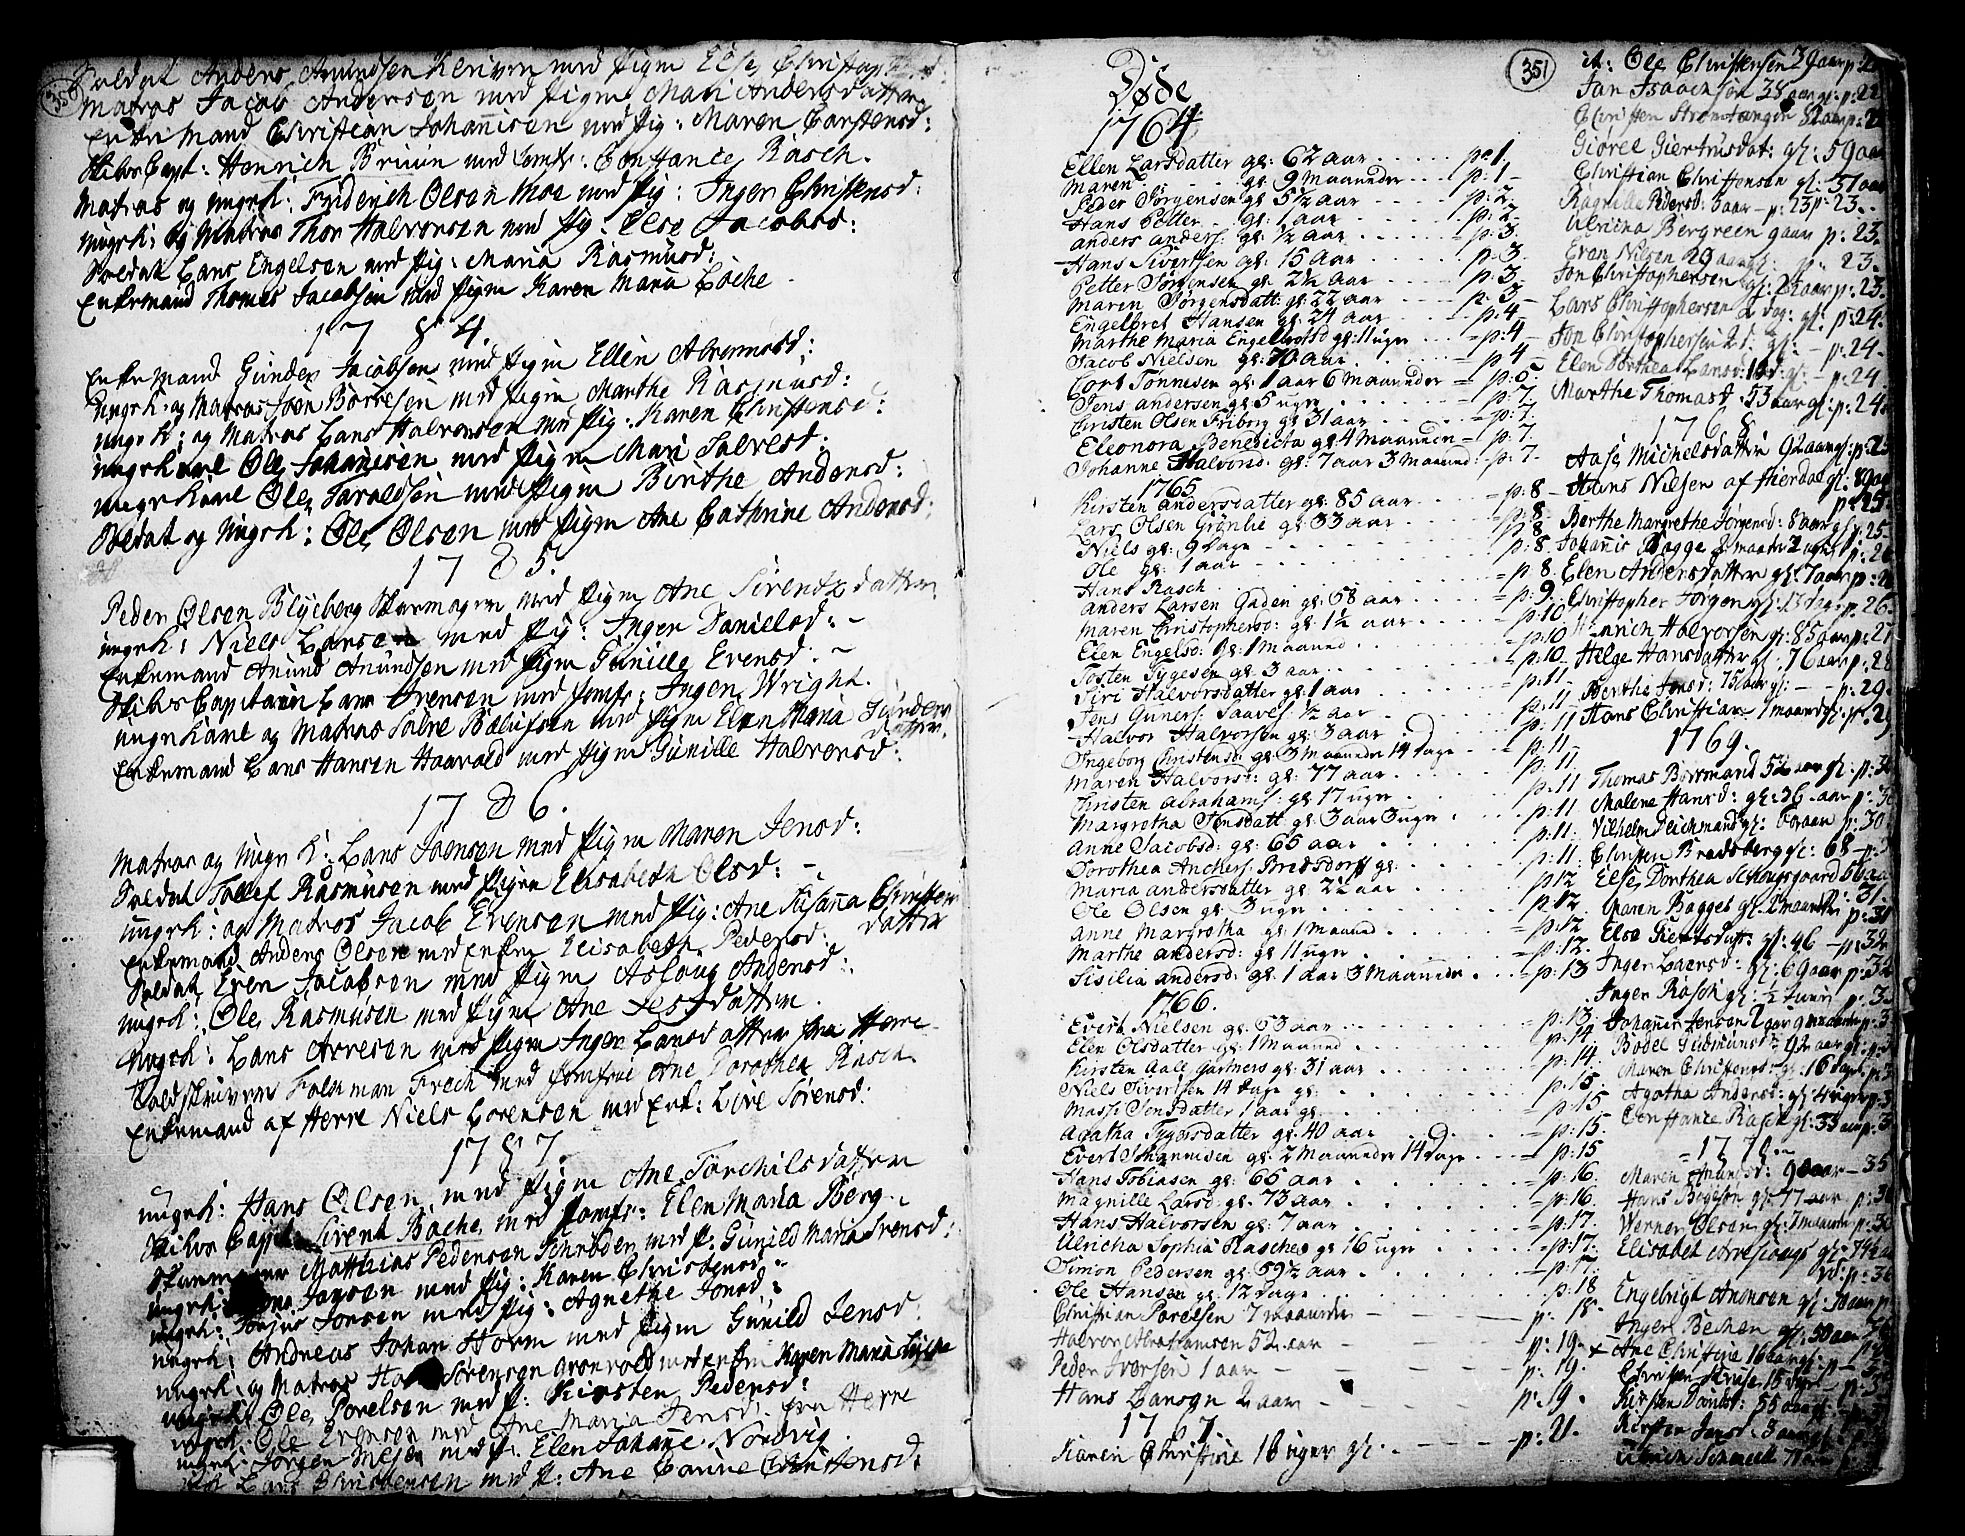 350
Soldat Anders Amundsen Keriven med Pigen Else
Matros Jacob Andersen med Pigen Mari Andersdatter
Enke Mand Christian Johannesen med Pig: Maren Carstensd:
Skibs Capt: Henrich Bruun med Jomfr: Constance Rasch.
Matros og ungk: Friderich Olsen Moe med Pig: Inger Christensd:
Ungk: og Matros Thor Halvorsen med Pig: Else Jacobsd:
Soldat Lars Engelsen med Pig: Maria Rasmusd:
Enkemand Thomas Jacobsen med Pigen Karen Maria Bache
1784.
Enke Mand Gunder Jacobsen med Pigen Ellen
Ungk: og Matros Joen Börresen med Pigen Marthe Rasmusd:
ungk: og Matros Lars Halvorsen med Pig: Karen Christensd:
ungkarl Ole Johannesen med Pigen Mari Salvesd:
ungkarl Ole Taraldsen med Pigen Birthe Andersd:
Soldat og Ungk: Ole Olsen med Pigen Ane Cathrine Andersd:
1785.
Peder Olsen Blyeberg Skomager med Pigen Ane Sirentz datter
ungk: Niels Larsen med Pig: Inger Danielsd:
Enkemand Anund Anundsen med Pigen Gunille Evensd:
Skibs Capitain Lars Svensen med Jomfr: Inger Wright.
ungkarl og Matros Salve med Pigen Elen Maria Gunders
datter.
Enkemand Lars Hansen Haavold med Pigen Gunille Halvorsd:
1786.
Matros og Ungk: Lars Joensen med Pigen Maren Jensd:
Soldat Tollef Rasmusen med Pigen Elisabeth Olsd:
ungk: og Matros Jacob Evensen med Pig: Ane Susanna Christens
datter
Enkemand Anders Olsen med Enken Elisabeth Pedersd:
Soldat Even Jacobsen med Pigen Aslaug Andersd:
ungk: Ole Rasmusen med Pigen Ane datter
Ungk: Lars Arvesen med Pigen Inger Larsdatter fra Herre
Toldskriveren Folkman Frech med Jomfrue Ane Dorothea Rasch
Enkemand af Herre Niels Lorensen med Enk: Live Sørensd:
1787.
ungk: Hans Olsen med Pigen Ane Torchilsdatter
Skibs Capit: Sirent Bache med Jomfr: Elen Maria Berg
Skommager Matthias Pedersen Schrøder med P: Gunild Maria Svensd:
ungk: Jansen med Pig: Karen Christensd:
ungk: Jonsen med Pig: Agnethe Jonsd:
ungk: Andreas Johan Horn med Pigen Gunild Jensd
ungk: og Matros Sørensen Grønvold med enken Karen Maria
ungk: Ole Porelsen med P: Kirsten Pedersd:
ungk: Ole Evensen med Ane Maria Jensd: fra Herre
ungk: Jørgen med P: Elen Johanne Nordvig
Lars Christensen med P: Ane Carine Christensd:
Døde
1764
Ellen Larsdatter gl: 62 aar p: 1.
Maren gl: 9 Maaneder p: 1
Peder Jörgensen gl: 5½ aar p: 2
Hans Petter gl: 1 aar p: 2
anders anders: gl: ½ aar p: 3.
Hans Siversen gl: 15 aar p: 3
Petter Jörgensen gl: 2½ aar p: 3
Maren Jörgensdatt: gl: 22 aar p: 3
Engelbret Hansen gl: 24 aar p: 4
Marthe Maria Engelbretsd gl: 11 uger p: 4
Jacob Nielsen gl: 70 aar p: 4
Cort Tönnesen gl: 1 aar 6 maaneder p: 5
Jens andersen gl: 5 uger p: 7
Christen Olsen Friborg gl: 31 aar p: 7.
Eleonora Benedicta gl: 4 Maaneder p: 7
Johanne Halvorsd: gl: 7 aar 3 Maaned: p: 7
1765
Kirsten andersdatter gl: 85 aar p: 8
Lars Olsen Grönlie gl: 33 aar p: 8
Niels gl: 9 dage p: 8
Ole gl: 1 aar p: 8
Hans Rasch p: 8
anders Larsen Gaden gl: 58 aar p: 9
Maren Christophersd: gl: 1½ aar p: 10
Elen Engelsd: gl: 1 Maaned p: 10
Tosten Tygesen gl: 3 aar p: 10
Siri Halvorsdatter gl: 1 aar p: 11
Jens Guners: Saaves: ½ aar p: 11
Halvor Halvorsen gl: 3 aar p: 11
Ingeborg Christensd: gl: 3 Maaneder 14 dage p: 11
Maren Halvorsd: gl: 77 aar p: 11
Christen abrahams: gl: 17 uger p: 11
Margretha Jensdatt gl: 3 aar 3 uger p: 11
anne Jacobsd: gl: 65 aar p: 11
Dorothea Anchers: Bredsdorff gl: p: 11
Maria andersdatter gl: 22 aar p: 12
Ole Olsen gl: 3 uger p: 12
Anne Margretha gl: 1 Maaned p: 12
Marthe andersd: gl: 11 uger p: 12
Sisilia andersd: gl: 1 aar 3 Maaneder p: 13
1766.
Evert Nielsen gl: 53 aar p: 13
Elen Olsdatter gl: 1 Maaned p: 14
Kirsten Aall Gartners gl: 31 aar p: 14
Niels Sivertsen 14 dage gl: p: 15
Masse Jensdatter 1 aar gl: p: 15
Agatha Tygersdatter gl: 40 aar p: 15
Evert Johannesen gl: 2 Maaneder 14 dage p: 15
Hans Tobiasen gl: 65 aar p: 16
Magnille Larsd: gl: 73 aar p: 16
Hans Halvorsen gl: 7 aar p: 17
Ulricha Sophia Rasches gl 16 uger p: 17
Simon Pedersen gl: 59½ aar p: 17
Ole Hansen gl: 12 dage p: 18
Christian Porelsen 7 maaneder p: 18
Halvor Abrahamsen 52 aar p: 19
Peder Iversen 1 aar p: 19
Hans Larsen 2 aar p: 19
1767.
Karen Christine 16 uger gl: p: 21
351
it: Ole Christensen 39 aar p: 22
Jan Isaachsen 38 aar gl: p: 22
Christen Strømtangen 82 aar p: 22
Giörel Giertrusdat: gl: 59 aar
Christian Christensen gl: 31 aar
Ragnille Pedersd: 3 aar p: 23 p: 23.
Ulricha Bergreen 9 aar p: 23.
Evan Nilsen 29 aar gl: p: 23.
Jon Christophersen gl: 25 aar p: 23.
Lars Christophersen 2 dag: gl: p: 24.
Jon Christophersen 2 d: gl: p: 24.
Elen Dorthea Larsd: 10 d: gl: p: 24
Marthe Thomasd: 53 aar gl: p: 24
1768
Aase Michelsdatter 92 aar gl: p: 25
Hans Nilsen af Hierdal gl: 89 aar
p: 25
Berthe Margrethe Jörgensd: 8 aar gl p: 25
Johannes Bagge 2 maander 2 uger p: 26
Elen Andersdatter gl: 7 aar p: 26
Christopher Jörgens gl: 13 dage p: 26
Henrich Halvorsen gl: 85 aar p: 27
Helge Hansdatter gl: 76 aar p: 28
Berthe Jensd: 75 aar gl: p: 29
Hans Christian 1 maaned gl: p: 29
1769.
Thomas Borremand 52 aar gl: p: 30
Malene Hansd: gl: 36 aar p: 30
Vilhelm Deichmand gl: aar p: 30
Christen Bredsberg gl: 68 p:
Else Dorthea Schougaard 66 aar
p: 31.
Karen Bagges gl: 2 maander p: 31
Else Giertsdatt: gl: 46 p: 32
Inger Larsd: gl: 69 aar p: 32
Inger Rasch gl: p: 3
Johannes Jensen 2 aar 9 maander p: 3
Bodel Gudmunds 92 aar gl: p: 3
Maren Christensd: gl: 16 dage p: 3
Agatha Andersd: gl: 4 uger p: 3
Constance Rasch gl: 33 aar p: 3
1770
Maren Amundsd: 90 aar 35
Hans gl: 77 aar p: 36
Werner Olsen gl: 7 maander p: 36
Elisabet gl: 74 aar
p: 36
Engebrigt Anonsen gl: 70 aar p
Inger Becken gl: 50 aar
x Ane Christine 16 aar gl: p
Kirsten Davidsd: 55 aar
Kirsten Jensd: 3 aar